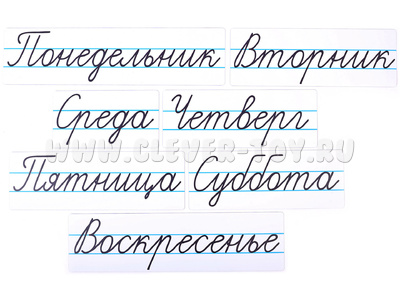 Понедельник Вторник
Среда Четверг
WWW.CLEVER-TOY.RU
Пятница Суббота
Воскресенье